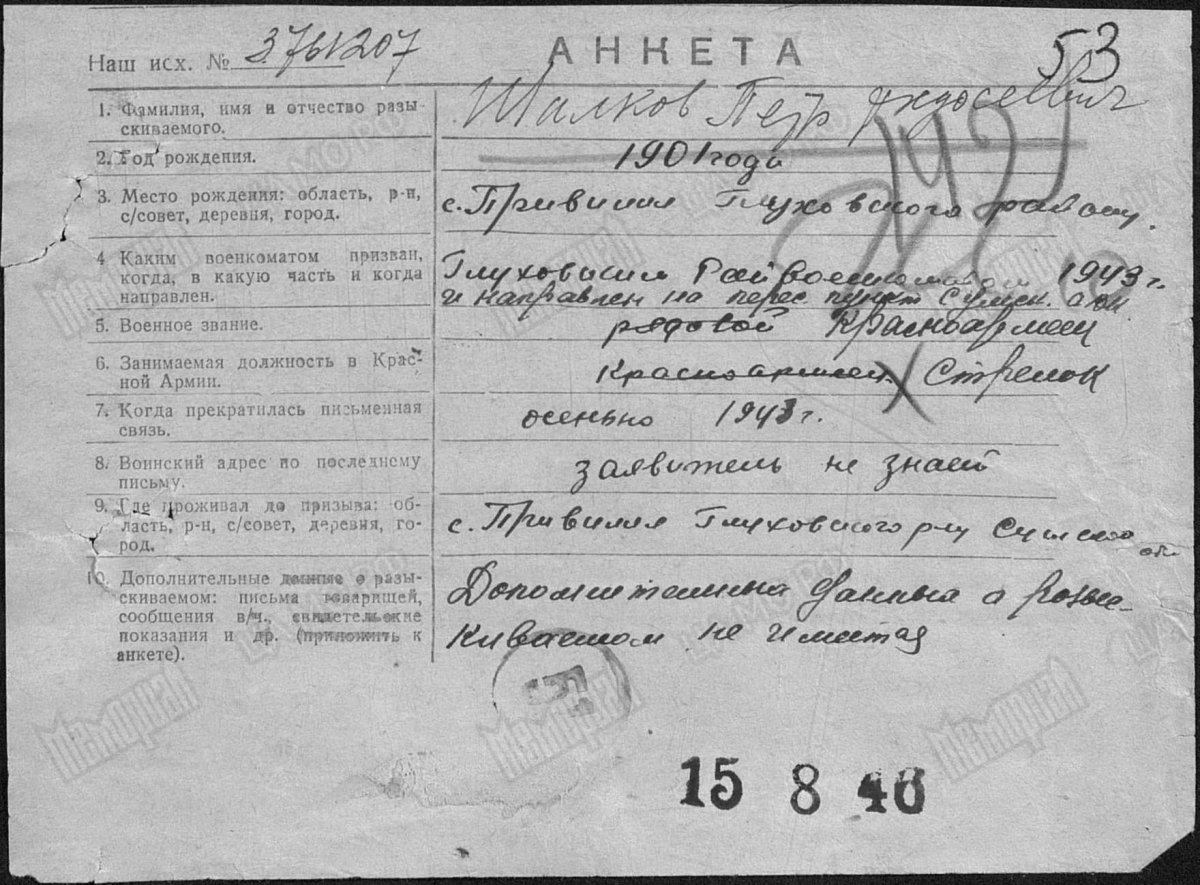 53
Наш исх. № 3761207
АНКЕТА
1. Фамилия, имя и отчество разы-
скиваемого.
Шалков Петр Федосеевич
2. Год рождения.
1901 года
3. Место рождения: область, р-н,
с/совет, деревня, город.
с. Привилля Глуховского району.
4 Каким военкоматом призван,
когда, в какую часть и когда
направлен.
Глуховским Райвоенкоматом 1943 г.
и направлен на перес пункт Сумск.
5. Военное звание.
рядовой Красноармеец
6. Занимаемая должность в Крас-
ной Армии.
Красноармеец Стрелок
7. Когда прекратилась письменная
связь.
осенью 1943 г.
8. Воинский адрес по последнему
письму.
заявитель не знает
9. Где проживал до призыва: об-
ласть, р-н, с/совет, деревня, го-
род.
с. Привилля Глуховского р-ну Сумской
обл
10. Дополнительные данные о разы-
скиваемом: письма товарищей,
сообщения в/ч., свидетельские
показания и др. (приложить к
анкете).
Дополнительных данных о розыс-
киваемом не имеется
15 8 46
Мемориал
Мемориал
Мемориал
Мемориал
Мемориал
Мемориал
ЦА МО РФ
ЦА МО РФ
ЦА МО РФ
ЦА МО РФ